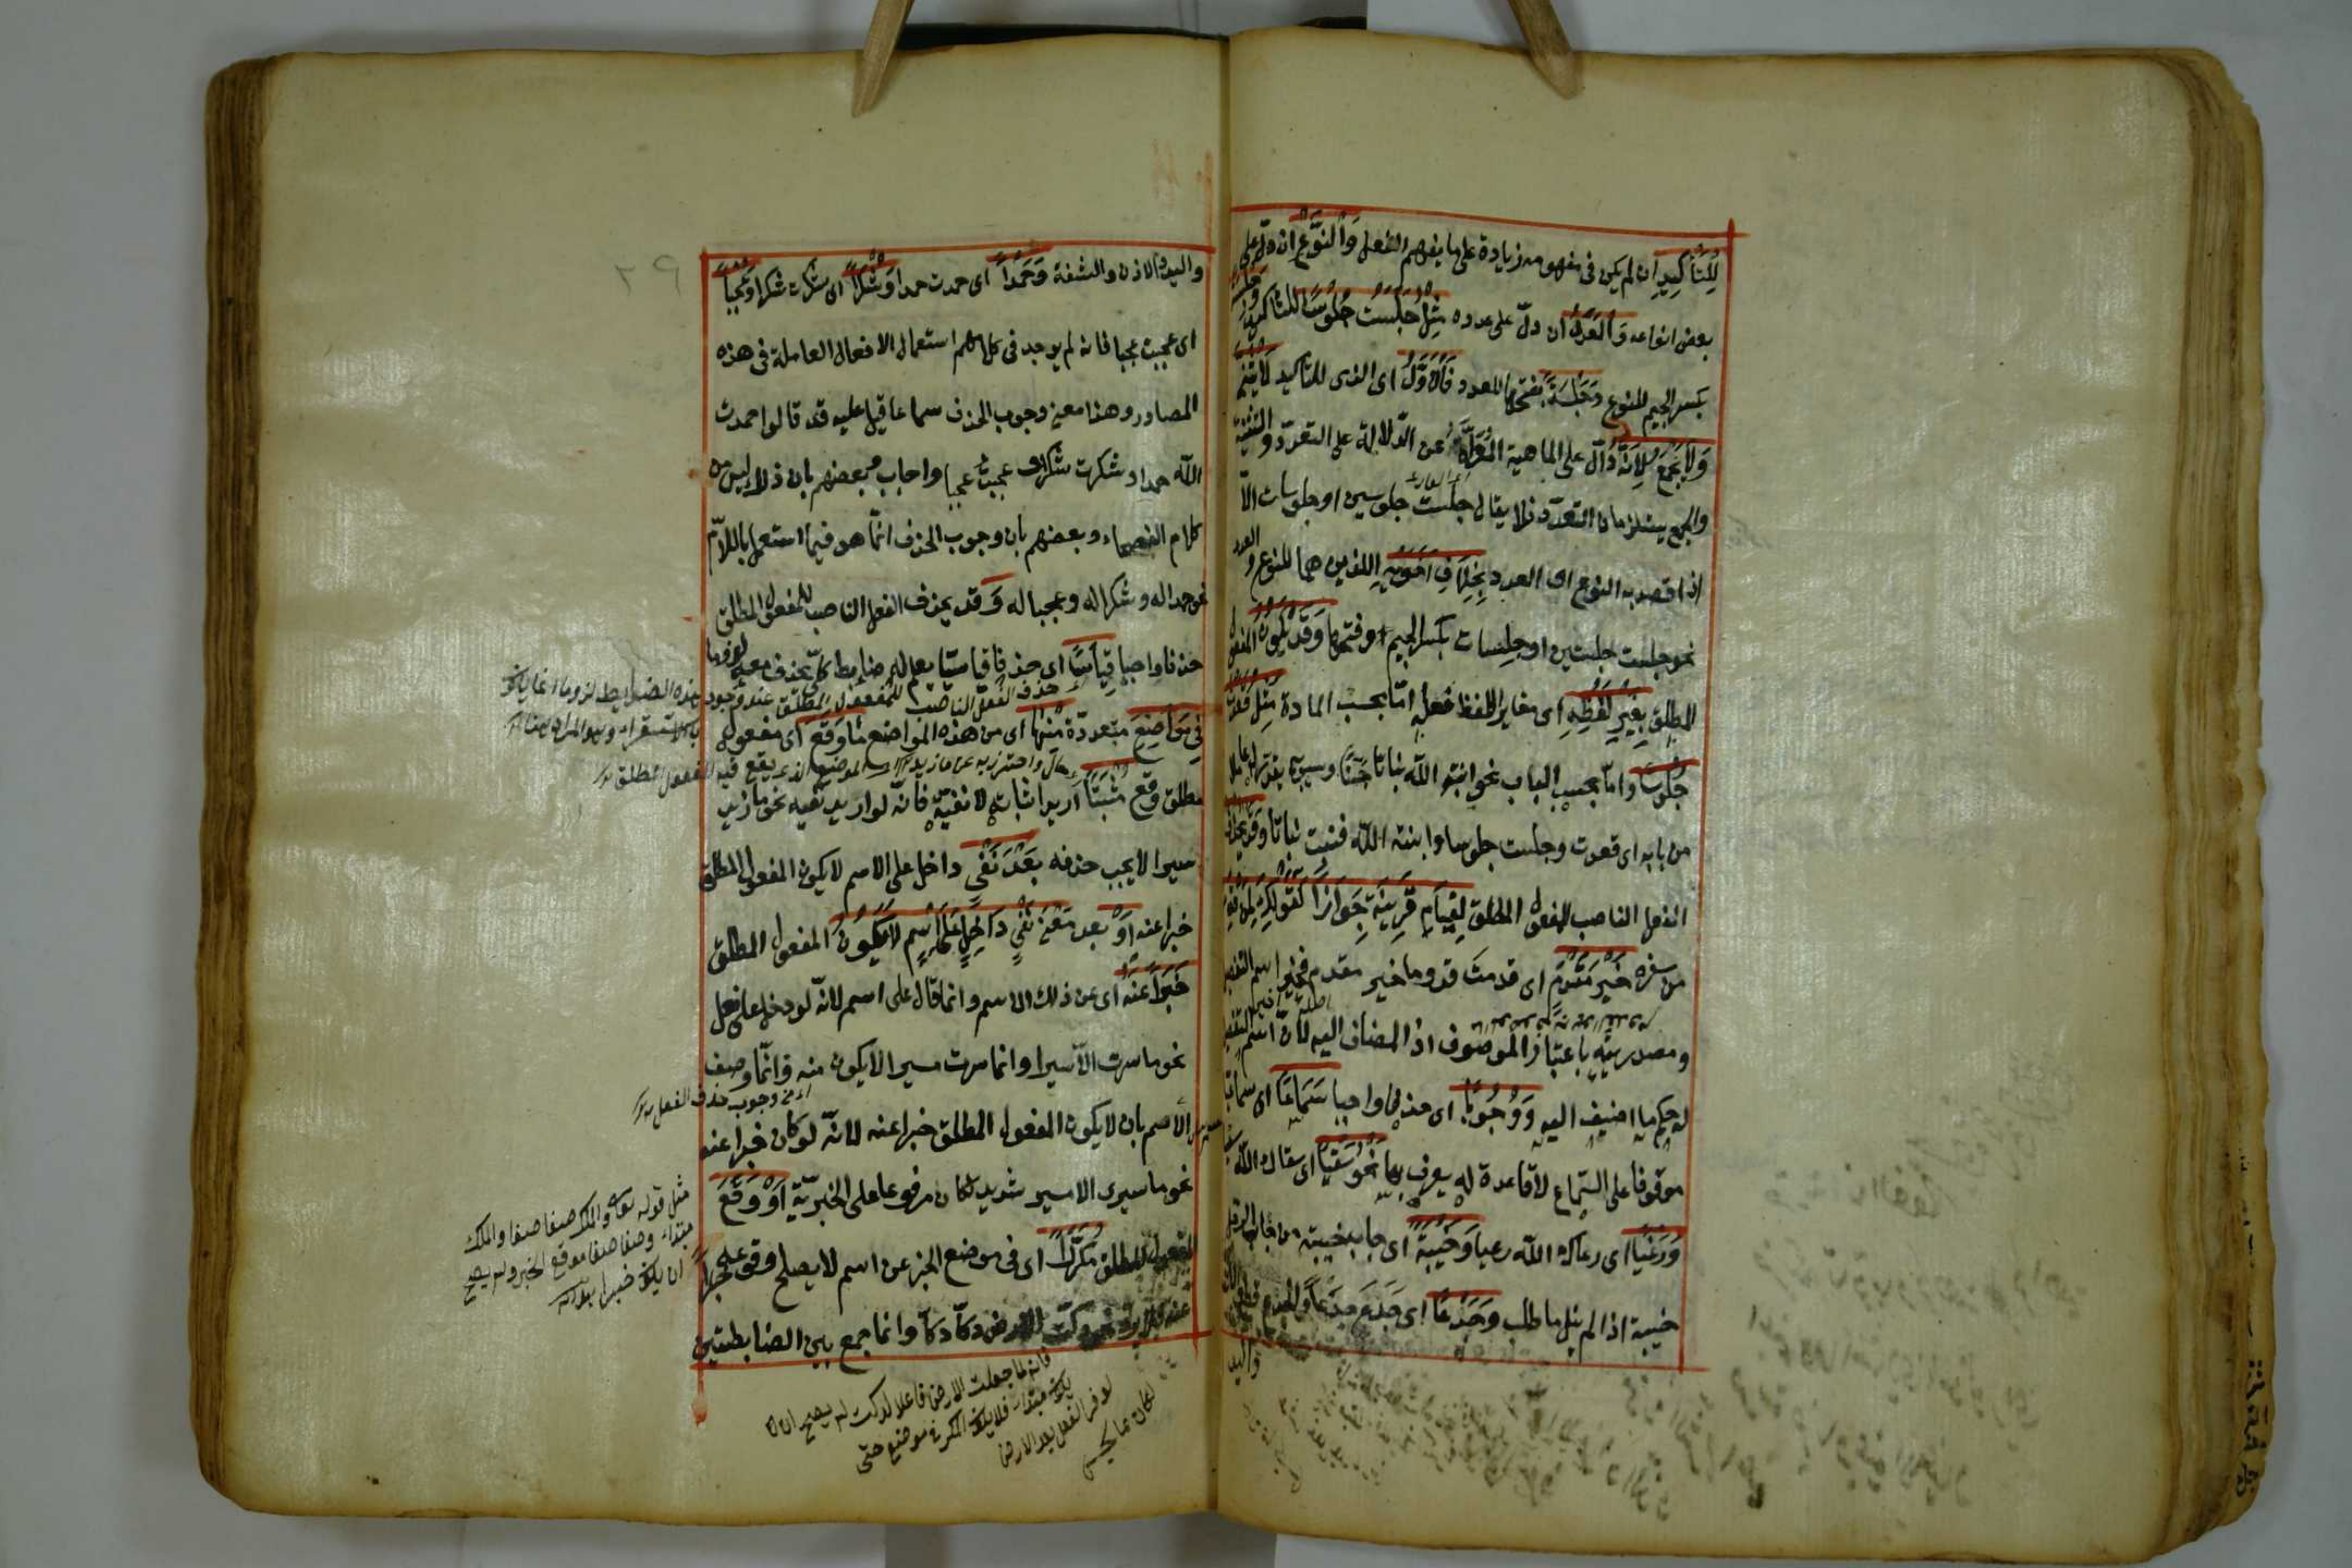 لِلتَّأكِيدِ ان لم يكن فى مفهومه زيادة على ما يفهم من الفعل وَالنَّوْعِ ان دلّ على
بعض انواعه وَالْعَدَدِ ان دلّ على عدده مِثْلُ جَلَسْتُ جُلُوسًا للتأكيد وَجِلْسَةً
بكسر الجيم للنوع وَجَلْسَةً بفتحها للعدد فَالْاَوَّلُ اى الذى للتاكيد لَا يُثَنَّى
وَلَا يُجْمَعُ لِاَنَّهُ دَالّ على الماهية المُعَرَّاةِ عن الدّلالة على التعدّد والتثنية
والجمع يستلزمان التعدّد فلا يقال جلست جلوسين او جلوسات الّا
اذا قصد به النوع او العدد بِخِلَافِ اَخَوَيْهِ اللذين هما للنوع والعدد
نحو جلست جلستين او جلسات بكسر الجيم او فتحها وَقَدْ يَكُونُ المفعول
المطلق بِغَيْرِ لَفْظِهِ اى مغايرا للفظ فعله امّا بحسب المادة مِثْلُ قَعَدْتُ
جُلُوسًا وامّا بحسب الباب نحو انبته الله نباتا حَسَنًا وسيبويه يقدّر له عاملا
من بابه اى قعدت وجلست جلوسا وانبته الله فنبت نباتا وَقَدْ يُحْذَفُ
الفعل الناصب للمفعول المطلق لِقِيَامِ قَرِينَةٍ جَوَازًا كَقَوْلِكَ لِمَنْ قَدِمَ
من سفره خَيْرَ مَقْدَمٍ اى قدمت قدوما خير مقدم فخير اسم التفضيل
ومصدريته باعتبار الموصوف او المضاف اليه لانّ اسم التفضيل
له حكم ما اضيف اليه وَوُجُوبًا اى حذفا واجبا سَمَاعًا اى سماعيا
موقوفا على السّماع لا قاعدة له يعرف بها نَحْوُ سَقْيًا اى سقاك الله سقيا
وَرَعْيًا اى رعاك الله رعيا وَخَيْبَةً اى خاب خيبة من خاب الرجل
خيبة اذا لم ينل ما طلب وَجَدْعًا اى جَدَعَ جَدْعًا والجدع قطع الانف
واليد
والاذن والشفة وَحَمْدًا اى حمدت حمدا وَشُكْرًا اى شكرت شكرا وَعَجَبًا
اى عجبت عجبا فانه لم يوجد فى كلامهم استعمال الافعال العاملة فى هذه
المصادر وهذا معنى وجوب الحذف سماعا قيل عليه قد قالوا حمدت
الله حمدا وشكرت شكرا وعجبت عجبا واجاب بعضهم بان ذلك ليس من
كلام الفصحاء وبعضهم بان وجوب الحذف انّما هو فيما استعمل باللّام
نحو حمدا له وشكرا له وعجبا له وَقد يحذف الفعل الناصب للمفعول المطلق
حذفا واجبا قِيَاسًا اى حذفا قياسيّا يعلم له ضابط كلّى يحذف معه لزوما
فِى مَوَاضِعَ متعددة مِنْهَا اى من هذه المواضع مَا وَقَعَ اى مفعول
مطلق وقع مُثْبَتًا اريد اثباته لا نفيه فانّه لو اريد نفيه نحو ما زيد
سيرا لا يجب حذفه بَعْدَ نَفْىٍ داخل على الاسم لا يكون المفعول المطلق
خبرا عنه اَوْ بعد مَعْنَى نَفْىٍ دَاخِلٍ عَلَى اسْمٍ لَا يَكُونُ المفعول المطلق
خَبَرًا عَنْهُ اى عن ذلك الاسم وانما قال على اسم لانّه لو دخل على فعل
نحو ما سرت الّا سيرا وانما سرت سيرا لا يكون منه وانّما وصف
الاسم بان لا يكون المفعول المطلق خبرا عنه لانّه لو كان خبرا عنه
نحو ما سيرى الا سير شديد لكان مرفوعا على الخبريّة اَوْ وَقَعَ
المفعول المطلق مُكَرَّرًا اى فى موضع الخبر عن اسم لا يصلح وقوعه خبرا
عنه دكّت الارض دكّا دكّا وانما جمع بين الضابطتين
حذف الفعل الناصب للمفعول المطلق عند وجود هذه الضوابط لزوما
الموضع الذى يقع فيه المفعول المطلق
اى من وجوب حذف الفعل
مثل قوله تعالى والملك صفا صفا والملك
مبتداء وصفا صفا موقع الخبر ولم يصح
ان يكون خبرا
فانه لما جعلت الارض فاعلا لدكت لم يصح ان
يكون مبتداء فلا يكون المكرر فى موضع